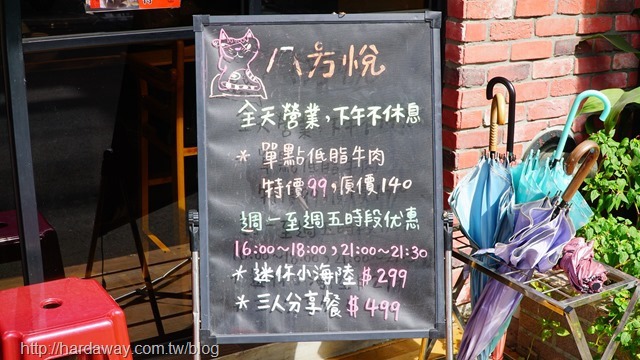 八方悅
全天營業，下午不休息
* 單點低脂牛肉
特價99，原價140
週一至週五時段优惠
16:00～18:00，21:00～21:30
* 迷你小海陸 $299
* 三人分享餐 $499
http://hardaway.com.tw/blog